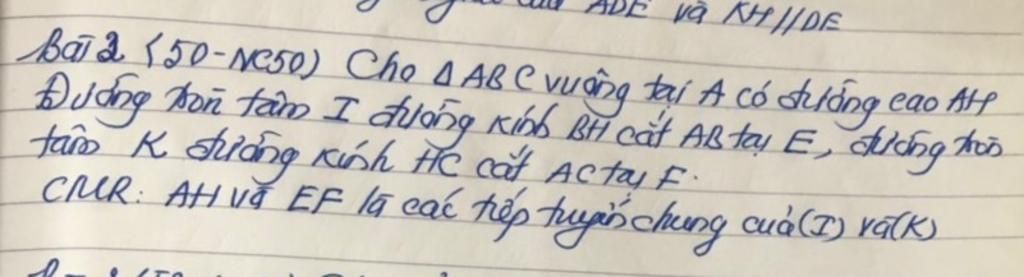 của ADE và KH//DE
Bài 2 (50-NC50) Cho △ABC vuông tại A có đường cao AH
Đường tròn tâm I đường kính BH cắt AB tại E, đường tròn
tâm K đường kính HC cắt AC tại F.
CMR: AH và EF là các tiếp tuyến chung của (I) và (K)